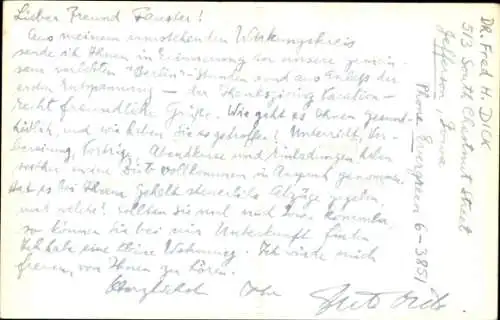 Lieber Freund Forster!
Aus meinem umstehenden Wirkungskreis
sende ich Ihnen in Erinnerung an unsere gemein-
sam verlebten "Berlin"-Stunden und aus Anlass der
ersten Entspannung — der Thanksgiving Vacation —
recht freundliche Grüße. Wie geht es Ihnen gesund-
heitlich, und wie haben Sie es getroffen? Unterricht, Vor-
bereitung, Vorträge, Abendkurse und Einladungen haben
meine Zeit vollkommen in Anspruch genommen.
Hat es bei Ihrem Gehalt steuerliche Abzüge gegeben,
und welche? Sollten Sie mal nach Iowa kommen,
so können Sie bei mir Unterkunft finden.
Ich habe eine kleine Wohnung. Ich würde mich
freuen, von Ihnen zu hören.
Herzlichst Ihr
DR. Fred H. DICK
513 South Chestnut Street
Jefferson, Iowa
Phone Evergreen 6-3851